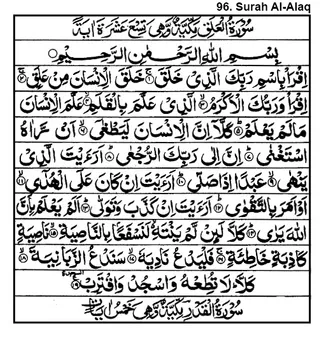 96. Surah Al-Alaq
سُورَةُ الْعَلَقِ مَكِّيَّةٌ وَهِيَ تِسْعَ عَشَرَةَ اٰيَةً
بِسْمِ اللهِ الرَّحْمٰنِ الرَّحِيْمِ
اِقْرَأْ بِاسْمِ رَبِّكَ الَّذِيْ خَلَقَ ۝١ خَلَقَ الْاِنْسَانَ مِنْ عَلَقٍ ۝٢
اِقْرَأْ وَرَبُّكَ الْاَكْرَمُ ۝٣ الَّذِيْ عَلَّمَ بِالْقَلَمِ ۝٤ عَلَّمَ الْاِنْسَانَ
مَا لَمْ يَعْلَمْ ۝٥ كَلَّا اِنَّ الْاِنْسَانَ لَيَطْغٰى ۝٦ اَنْ رَّاٰهُ
اسْتَغْنٰى ۝٧ اِنَّ اِلٰى رَبِّكَ الرُّجْعٰى ۝٨ اَرَءَيْتَ الَّذِيْ
يَنْهٰى ۝٩ عَبْدًا اِذَا صَلّٰى ۝١٠ اَرَءَيْتَ اِنْ كَانَ عَلَى الْهُدٰى ۝١١
اَوْ اَمَرَ بِالتَّقْوٰى ۝١٢ اَرَءَيْتَ اِنْ كَذَّبَ وَتَوَلّٰى ۝١٣ اَلَمْ يَعْلَمْ بِاَنَّ
اللهَ يَرٰى ۝١٤ كَلَّا لَئِنْ لَّمْ يَنْتَهِ لَنَسْفَعًا بِالنَّاصِيَةِ ۝١٥ نَاصِيَةٍ
كَاذِبَةٍ خَاطِئَةٍ ۝١٦ فَلْيَدْعُ نَادِيَهٗ ۝١٧ سَنَدْعُ الزَّبَانِيَةَ ۝١٨
كَلَّا لَا تُطِعْهُ وَاسْجُدْ وَاقْتَرِبْ ۝١٩
سُوْرَةُ الْقَدْرِ مَكِّيَّةٌ وَهِيَ خَمْسُ اٰيَاتٍ